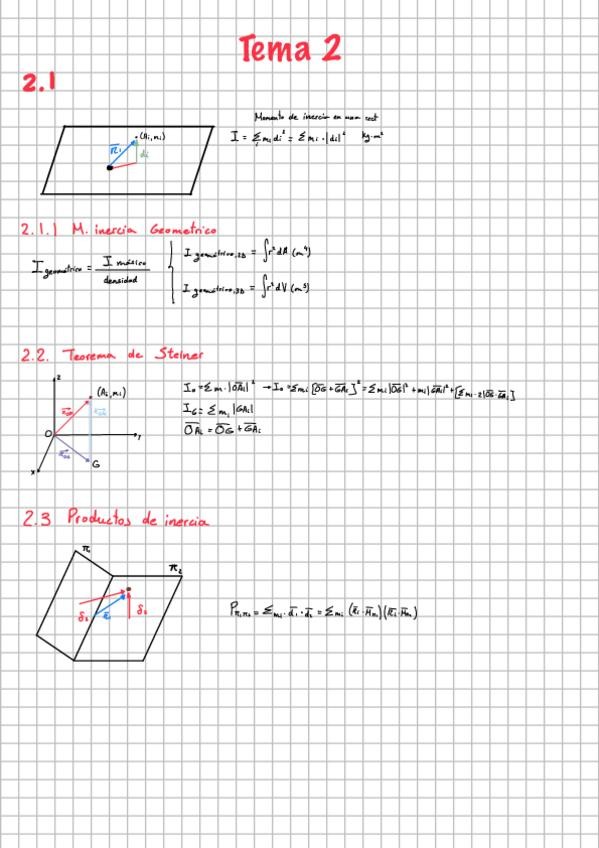 Tema 2
2.1
Momento de inercia en una rect
(Ai, mi)
di
I = Σ mi di² = Σ mi · |di|² kg·m²
2.1.1 M. inercia Geometrico
I geométrico = I másico / densidad
I geométrico, 2D = ∫r² dA (m⁴)
I geométrico, 3D = ∫r² dV (m⁵)
2.2. Teorema de Steiner
z
(Ai, mi)
O
G
x
y
I₀ = Σ m · |OAi|² → I₀ = Σ mi [OG + GAi]² = Σ mi |OG|² + mi |GAi|² + [Σ mi · 2|OG · GAi]
IG = Σ mi |GAi|
OAi = OG + GAi
2.3 Productos de inercia
π₁
π₂
δ₂
δ₁
Pπ₁π₂ = Σ mi · d₁ · d₂ = Σ mi